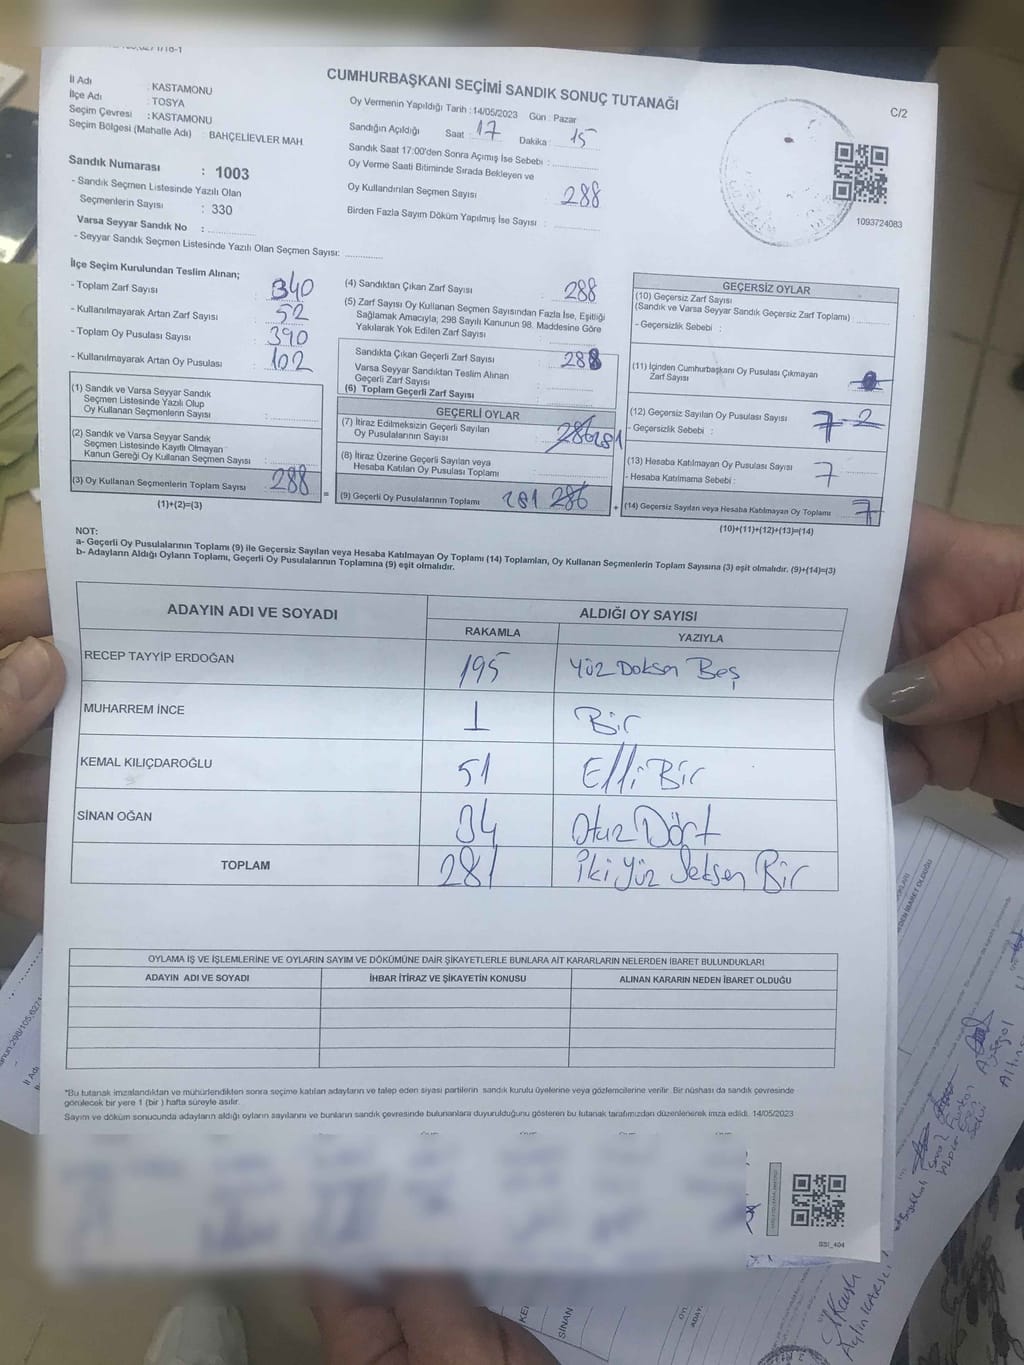 CUMHURBAŞKANI SEÇİMİ SANDIK SONUÇ TUTANAĞI
C/2
İl Adı : KASTAMONU
İlçe Adı : TOSYA
Seçim Çevresi : KASTAMONU
Seçim Bölgesi (Mahalle Adı) : BAHÇELİEVLER MAH
Sandık Numarası : 1003
- Sandık Seçmen Listesinde Yazılı Olan
Seçmenlerin Sayısı : 330
Varsa Seyyar Sandık No :
- Seyyar Sandık Seçmen Listesinde Yazılı Olan Seçmen Sayısı:
Oy Vermenin Yapıldığı Tarih : 14/05/2023 Gün : Pazar
Sandığın Açıldığı Saat : 17 Dakika : 15
Sandık Saat 17:00'den Sonra Açımış İse Sebebi :
Oy Verme Saati Bitiminde Sırada Bekleyen ve
Oy Kullandırılan Seçmen Sayısı 288
Birden Fazla Sayım Döküm Yapılmış İse Sayısı :
1093724083
İlçe Seçim Kurulundan Teslim Alınan;
- Toplam Zarf Sayısı : 340
- Kullanılmayarak Artan Zarf Sayısı : 52
- Toplam Oy Pusulası Sayısı : 390
- Kullanılmayarak Artan Oy Pusulası : 102
(1) Sandık ve Varsa Seyyar Sandık
Seçmen Listesinde Yazılı Olup
Oy Kullanan Seçmenlerin Sayısı :
(2) Sandık ve Varsa Seyyar Sandık
Seçmen Listesinde Kayıtlı Olmayan
Kanun Gereği Oy Kullanan Seçmen Sayısı :
(3) Oy Kullanan Seçmenlerin Toplam Sayısı 288
(1)+(2)=(3)
(4) Sandıktan Çıkan Zarf Sayısı : 288
(5) Zarf Sayısı Oy Kullanan Seçmen Sayısından Fazla İse, Eşitliği
Sağlamak Amacıyla; 298 Sayılı Kanunun 98. Maddesine Göre
Yakılarak Yok Edilen Zarf Sayısı :
Sandıkta Çıkan Geçerli Zarf Sayısı : 288
Varsa Seyyar Sandıktan Teslim Alınan
Geçerli Zarf Sayısı :
(6) Toplam Geçerli Zarf Sayısı :
GEÇERLİ OYLAR
(7) İtiraz Edilmeksizin Geçerli Sayılan
Oy Pusulalarının Sayısı : 286 281
(8) İtiraz Üzerine Geçerli Sayılan veya
Hesaba Katılan Oy Pusulası Toplamı :
(9) Geçerli Oy Pusulalarının Toplamı 281 286
GEÇERSİZ OYLAR
(10) Geçersiz Zarf Sayısı
(Sandık ve Varsa Seyyar Sandık Geçersiz Zarf Toplamı)
- Geçersizlik Sebebi :
(11) İçinden Cumhurbaşkanı Oy Pusulası Çıkmayan
Zarf Sayısı
(12) Geçersiz Sayılan Oy Pusulası Sayısı : 7-2
- Geçersizlik Sebebi :
(13) Hesaba Katılmayan Oy Pusulası Sayısı : 7
- Hesaba Katılmama Sebebi :
(14) Geçersiz Sayılan veya Hesaba Katılmayan Oy Toplamı 7
(10)+(11)+(12)+(13)=(14)
NOT:
a- Geçerli Oy Pusulalarının Toplamı (9) ile Geçersiz Sayılan veya Hesaba Katılmayan Oy Toplamı (14) Toplamları, Oy Kullanan Seçmenlerin Toplam Sayısına (3) eşit olmalıdır. (9)+(14)=(3)
b- Adayların Aldığı Oyların Toplamı, Geçerli Oy Pusulalarının Toplamına (9) eşit olmalıdır.
ADAYIN ADI VE SOYADI
ALDIĞI OY SAYISI
RAKAMLA YAZIYLA
RECEP TAYYİP ERDOĞAN 195 Yüz Doksan Beş
MUHARREM İNCE 1 Bir
KEMAL KILIÇDAROĞLU 51 Elli Bir
SİNAN OĞAN 34 Otuz Dört
TOPLAM 281 İki Yüz Seksen Bir
OYLAMA İŞ VE İŞLEMLERİNE VE OYLARIN SAYIM VE DÖKÜMÜNE DAİR ŞİKAYETLERLE BUNLARA AİT KARARLARIN NELERDEN İBARET BULUNDUKLARI
ADAYIN ADI VE SOYADI İHBAR İTİRAZ VE ŞİKAYETİN KONUSU ALINAN KARARIN NEDEN İBARET OLDUĞU
*Bu tutanak imzalandıktan ve mühürlendikten sonra seçime katılan adayların ve talep eden siyasi partilerin sandık kurulu üyelerine veya gözlemcilerine verilir. Bir nüshası da sandık çevresinde
görülecek bir yere 1 (bir ) hafta süreyle asılır.
Sayım ve döküm sonucunda adayların aldığı oyların sayılarını ve bunların sandık çevresinde bulunanlara duyurulduğunu gösteren bu tutanak tarafımızdan düzenlenerek imza edildi. 14/05/2023
SSI_404
SİNAN